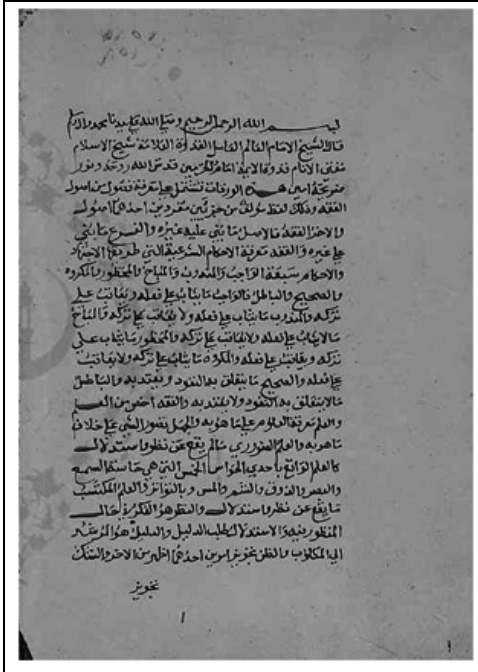 بسم الله الرحمن الرحيم وصلى الله على سيدنا محمد واله
قال الشيخ الامام العالم الفاضل القدوة العلامة شيخ الاسلام
مفتى الانام قدوة الايمة امام الحرمين قدس الله روحه ونور
ضريحه امين هذه الورقات تشتمل على معرفة فصول من اصول
الفقه وذلك لفظ مولف من جزئين مفردين احدهما اصول
والاخر الفقه فالاصل ما بنى عليه غيره والفرع ما يبنى
على غيره والفقه معرفة الاحكام الشرعية التي طريقها الاجتهاد
والاحكام سبعة الواجب والمندوب والمباح والمحظور والمكروه
والصحيح والباطل فالواجب ما يثاب على فعله ويعاقب على
تركه والمندوب ما يثاب على فعله ولا يعاقب على تركه والمباح
ما لا يثاب على فعله ولا يعاقب على تركه والمحظور ما يثاب على
تركه ويعاقب على فعله والمكروه ما يثاب على تركه ولا يعاقب
على فعله والصحيح ما يتعلق به النفوذ ويعتد به والباطل
ما لا يتعلق به النفوذ ولا يعتد به والفقه اخص من العلم
والعلم معرفة المعلوم على ما هو به والجهل تصور الشي على خلاف
ما هو به والعلم الضروري ما لم يقع عن نظر واستدلال
كالعلم الواقع باحدى الحواس الخمس التي هي حاسة السمع
والبصر والذوق والشم واللمس وبالتواتر والعلم المكتسب
ما يقع عن نظر واستدلال والنظر هو الفكر في حال
المنظور فيه والاستدلال طلب الدليل والدليل هو المرشد
الى المطلوب والظن تجويز امرين احدهما اظهر من الاخر والشك
تجويز
١